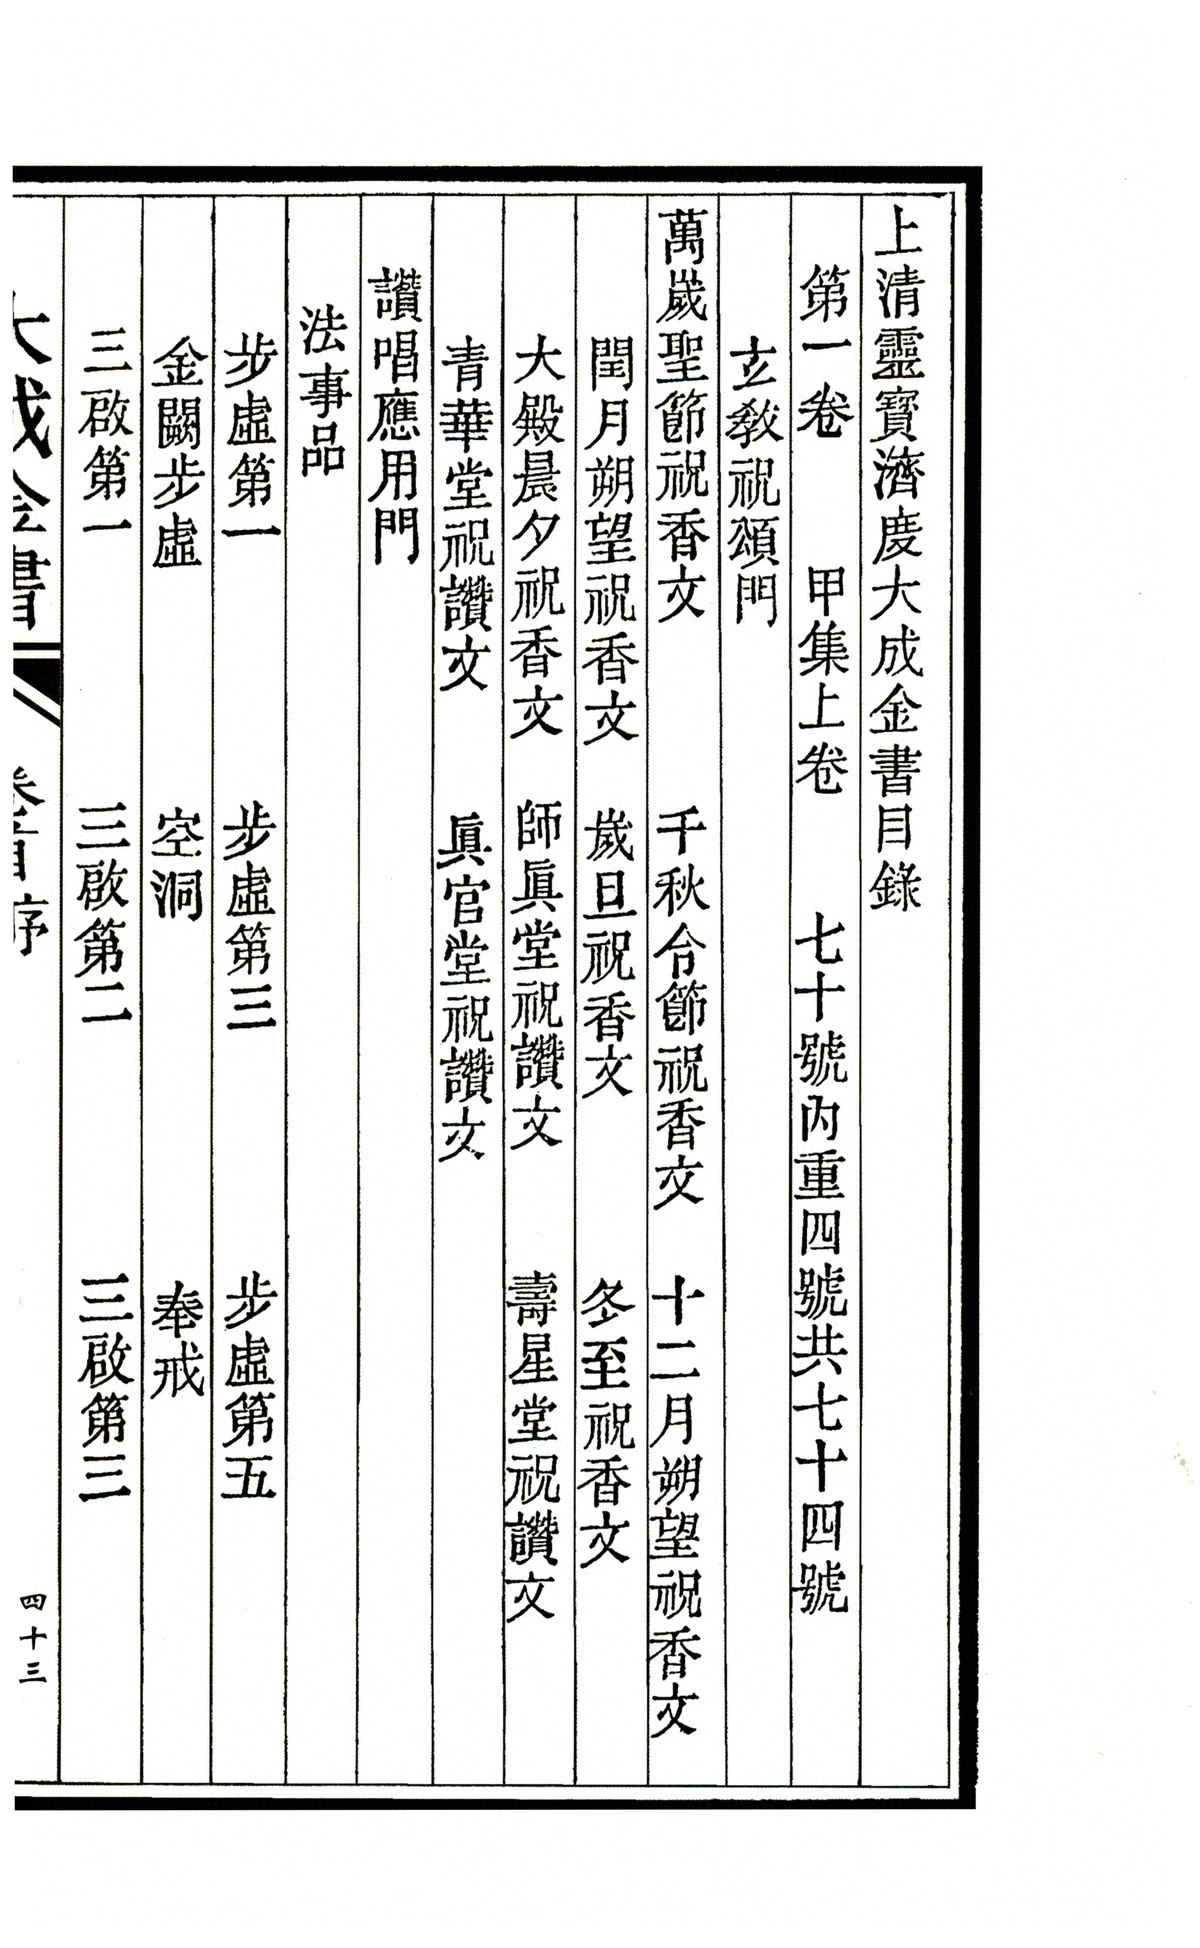 上清靈寶濟度大成金書目錄
第一卷　甲集上卷　七十號內重四號共七十四號
玄敎祝頌門
萬歲聖節祝香文　千秋令節祝香文　十二月朔望祝香文
閏月朔望祝香文　歲旦祝香文　冬至祝香文
大殿晨夕祝香文　師眞堂祝讚文　壽星堂祝讚文
青華堂祝讚文　眞官堂祝讚文
讚唱應用門
法事品
步虛第一　步虛第三　步虛第五
金闕步虛　空洞　奉戒
三啟第一　三啟第二　三啟第三
大成金書　卷首　序　四十三